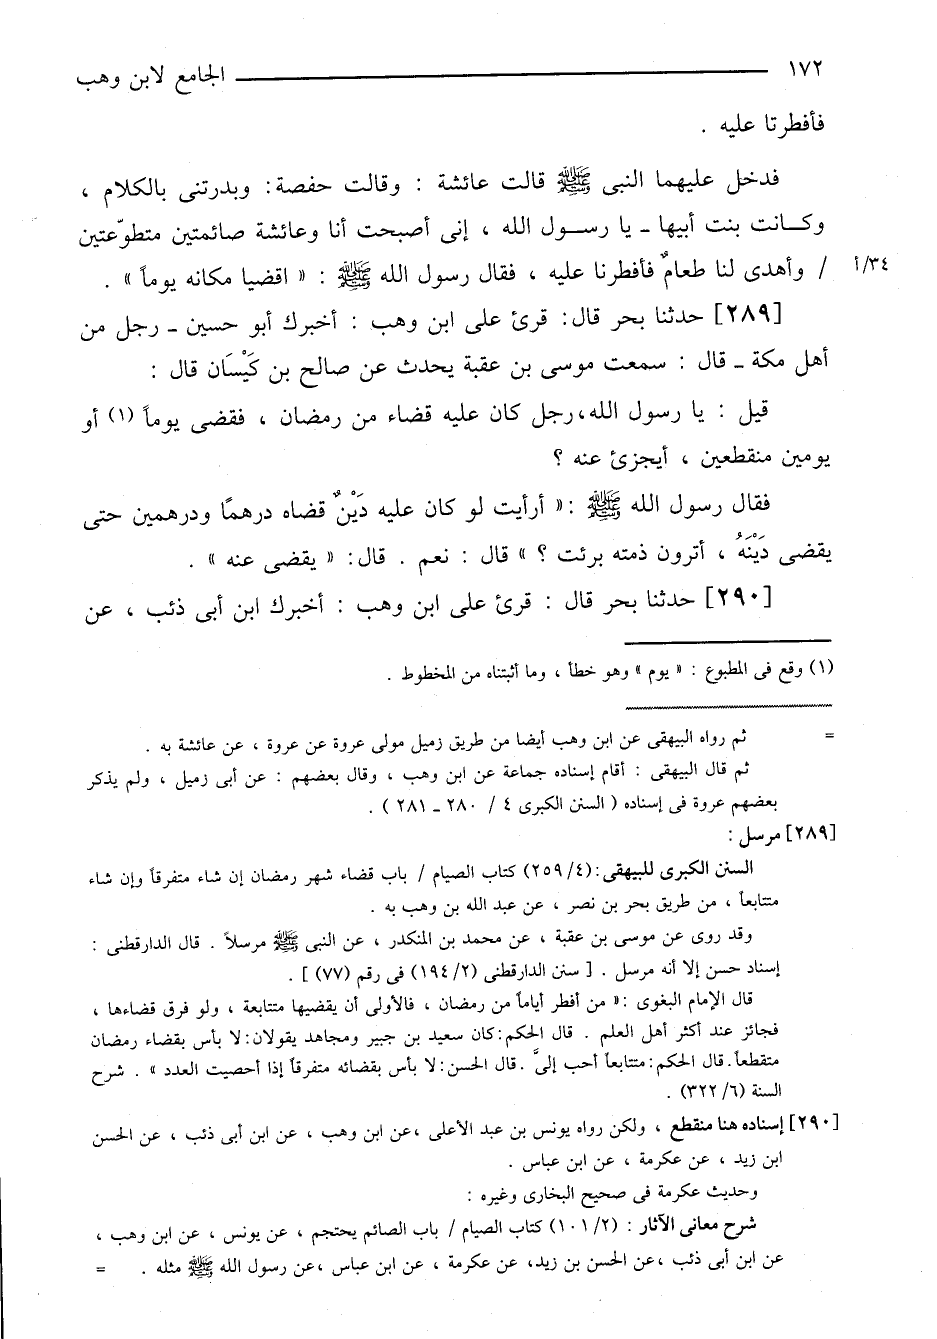 ١٧٢ الجامع لابن وهب
فأفطرتا عليه .
فدخل عليهما النبى ﷺ قالت عائشة : وقالت حفصة : وبدرتنى بالكلام ،
وكانت بنت أبيها ـ يا رسول الله ، إنى أصبحت أنا وعائشة صائمتين متطوّعتين
٣٤/أ / وأهدى لنا طعامٌ فأفطرنا عليه ، فقال رسول الله ﷺ : « اقضيا مكانه يوماً » .
[٢٨٩] حدثنا بحر قال : قرئ على ابن وهب : أخبرك أبو حسين ـ رجل من
أهل مكة ـ قال : سمعت موسى بن عقبة يحدث عن صالح بن كَيْسَان قال :
قيل : يا رسول الله، رجل كان عليه قضاء من رمضان ، فقضى يوماً (١) أو
يومين منقطعين ، أيجزئ عنه ؟
فقال رسول الله ﷺ : « أرأيت لو كان عليه دَيْنٌ قضاه درهمًا ودرهمين حتى
يقضى دَيْنَهُ ، أترون ذمته برئت ؟ » قال : نعم . قال : « يقضى عنه » .
[٢٩٠] حدثنا بحر قال : قرئ على ابن وهب : أخبرك ابن أبى ذئب ، عن
(١) وقع فى المطبوع : « يوم » وهو خطأ ، وما أثبتناه من المخطوط .
= ثم رواه البيهقى عن ابن وهب أيضا من طريق زميل مولى عروة عن عروة ، عن عائشة به .
ثم قال البيهقى : أقام إسناده جماعة عن ابن وهب ، وقال بعضهم : عن أبى زميل ، ولم يذكر
بعضهم عروة فى إسناده ( السنن الكبرى ٤ / ٢٨٠ ـ ٢٨١ ) .
[٢٨٩] مرسل :
السنن الكبرى للبيهقى : (٤/ ٢٥٩) كتاب الصيام / باب قضاء شهر رمضان إن شاء متفرقاً وإن شاء
متتابعاً ، من طريق بحر بن نصر ، عن عبد الله بن وهب به .
وقد روى عن موسى بن عقبة ، عن محمد بن المنكدر ، عن النبى ﷺ مرسلاً . قال الدارقطنى :
إسناد حسن إلا أنه مرسل . [ سنن الدارقطنى (٢/ ١٩٤) فى رقم (٧٧) ] .
قال الإمام البغوى : « من أفطر أياماً من رمضان ، فالأولى أن يقضيها متتابعة ، ولو فرق قضاءها ،
فجائز عند أكثر أهل العلم . قال الحكم : كان سعيد بن جبير ومجاهد يقولان : لا بأس بقضاء رمضان
متقطعاً. قال الحكم : متتابعاً أحب إلىَّ . قال الحسن : لا بأس بقضائه متفرقاً إذا أحصيت العدد » . شرح
السنة (٦/ ٣٢٢) .
[٢٩٠] إسناده هنا منقطع ، ولكن رواه يونس بن عبد الأعلى ، عن ابن وهب ، عن ابن أبى ذئب ، عن الحسن
ابن زيد ، عن عكرمة ، عن ابن عباس .
وحديث عكرمة فى صحيح البخارى وغيره :
شرح معانى الآثار : (٢/ ١٠١) كتاب الصيام / باب الصائم يحتجم ، عن يونس ، عن ابن وهب ،
عن ابن أبى ذئب ، عن الحسن بن زيد، عن عكرمة ، عن ابن عباس ، عن رسول الله ﷺ مثله . =